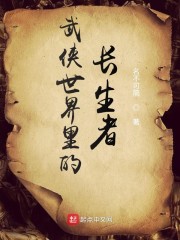 武侠世界里的
长生者
著
起 起点中文网